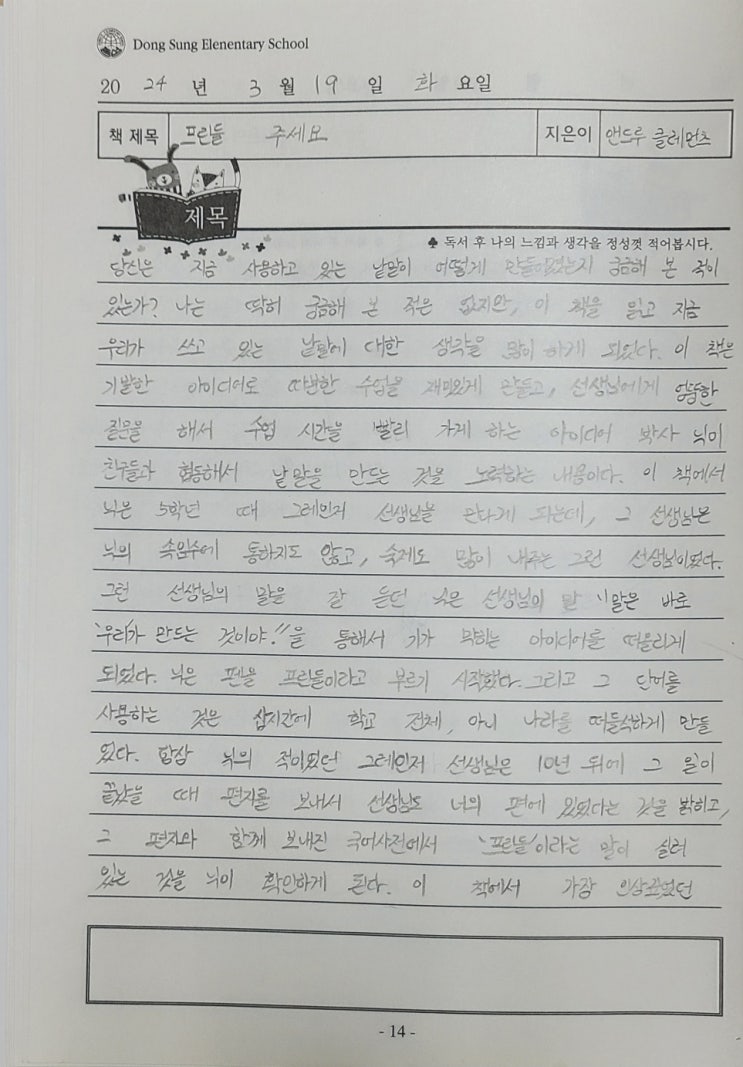 Dong Sung Elenentary School
20 24 년 3 월 19 일 화 요일
책 제목 프린들 주세요 지은이 앤드루 클레먼츠
제목
♠ 독서 후 나의 느낌과 생각을 정성껏 적어봅시다.
당신은 지금 사용하고 있는 낱말이 어떻게 만들어졌는지 궁금해 본 적이
있는가? 나는 딱히 궁금해 본 적은 없지만, 이 책을 읽고 지금
우리가 쓰고 있는 낱말에 대한 생각을 많이 하게 되었다. 이 책은
기발한 아이디어로 따분한 수업을 재미있게 만들고, 선생님에게 엉뚱한
질문을 해서 수업 시간을 빨리 가게 하는 아이디어 박사 닉이
친구들과 협동해서 낱말을 만드는 것을 노력하는 내용이다. 이 책에서
닉은 5학년 때 그레인저 선생님을 만나게 되는데, 그 선생님은
닉의 속임수에 통하지도 않고, 숙제도 많이 내주는 그런 선생님이었다.
그런 선생님의 말을 잘 듣던 닉은 선생님의 말 "말은 바로
우리가 만드는 것이야!"을 통해서 기가 막히는 아이디어를 떠올리게
되었다. 닉은 펜을 프린들이라고 부르기 시작했다. 그리고 그 단어를
사용하는 것은 삽시간에 학교 전체, 아니 나라를 떠들석하게 만들
었다. 항상 닉의 적이었던 그레인저 선생님은 10년 뒤에 그 일이
끝났을 때 편지를 보내서 선생님도 너의 편에 있었다는 것을 밝히고,
그 편지와 함께 보내진 국어사전에서 '프린들'이라는 말이 실려
있는 것을 닉이 확인하게 된다. 이 책에서 가장 인상깊었던
- 14 -